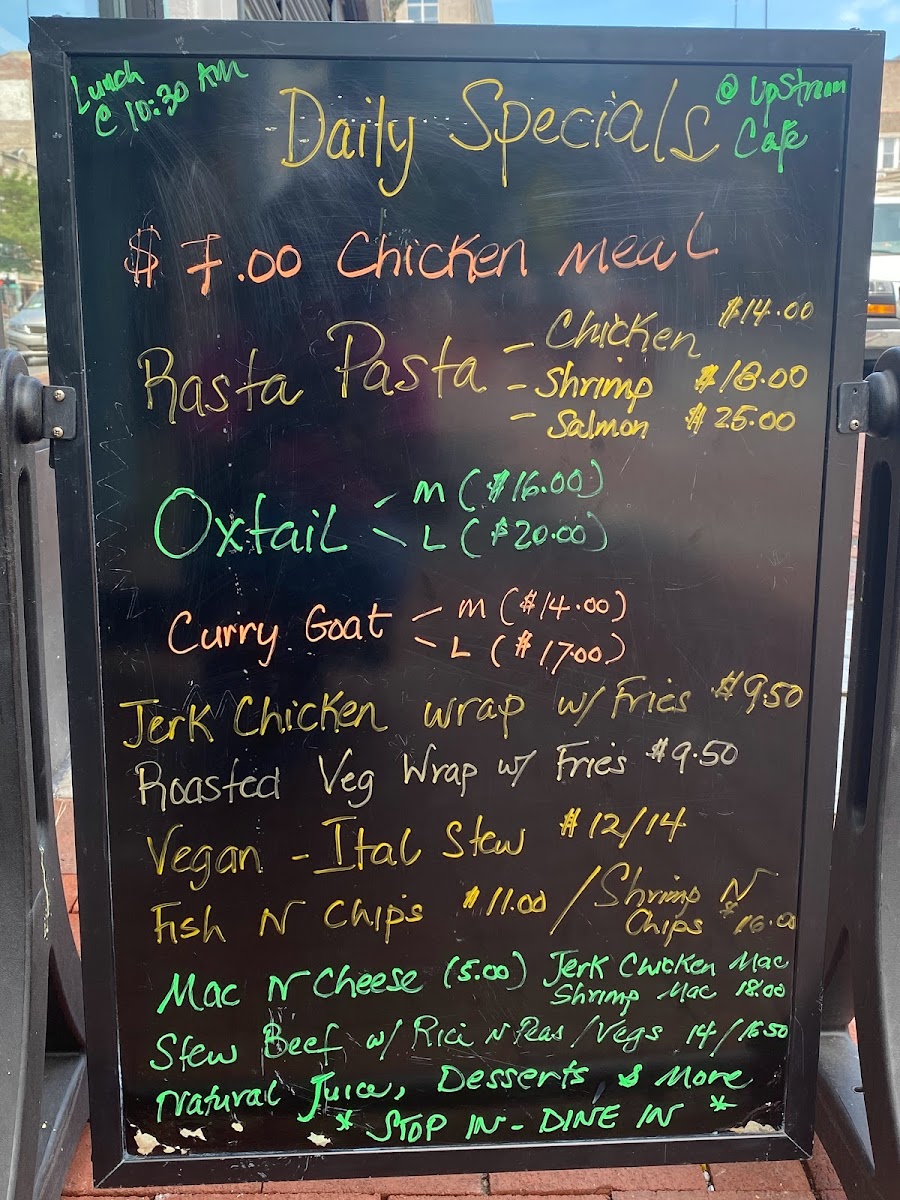 Lunch
@ 10:30 AM
@ UpStream
Cafe
Daily Specials
$7.00 Chicken meal
Rasta Pasta - Chicken $14.00
- Shrimp $18.00
- Salmon $25.00
Oxtail - M ($16.00)
- L ($20.00)
Curry Goat - M ($14.00)
- L ($17.00)
Jerk Chicken wrap w/ Fries $9.50
Roasted Veg Wrap w/ Fries $9.50
Vegan - Ital Stew $12/14
Fish N Chips $11.00 / Shrimp N
Chips $16.00
Mac N Cheese (5.00) Jerk Chicken Mac
Shrimp Mac 18.00
Stew Beef w/ Rice N Peas / Vegs 14/16.50
Natural Juice, Desserts & More
* STOP IN - DINE IN *